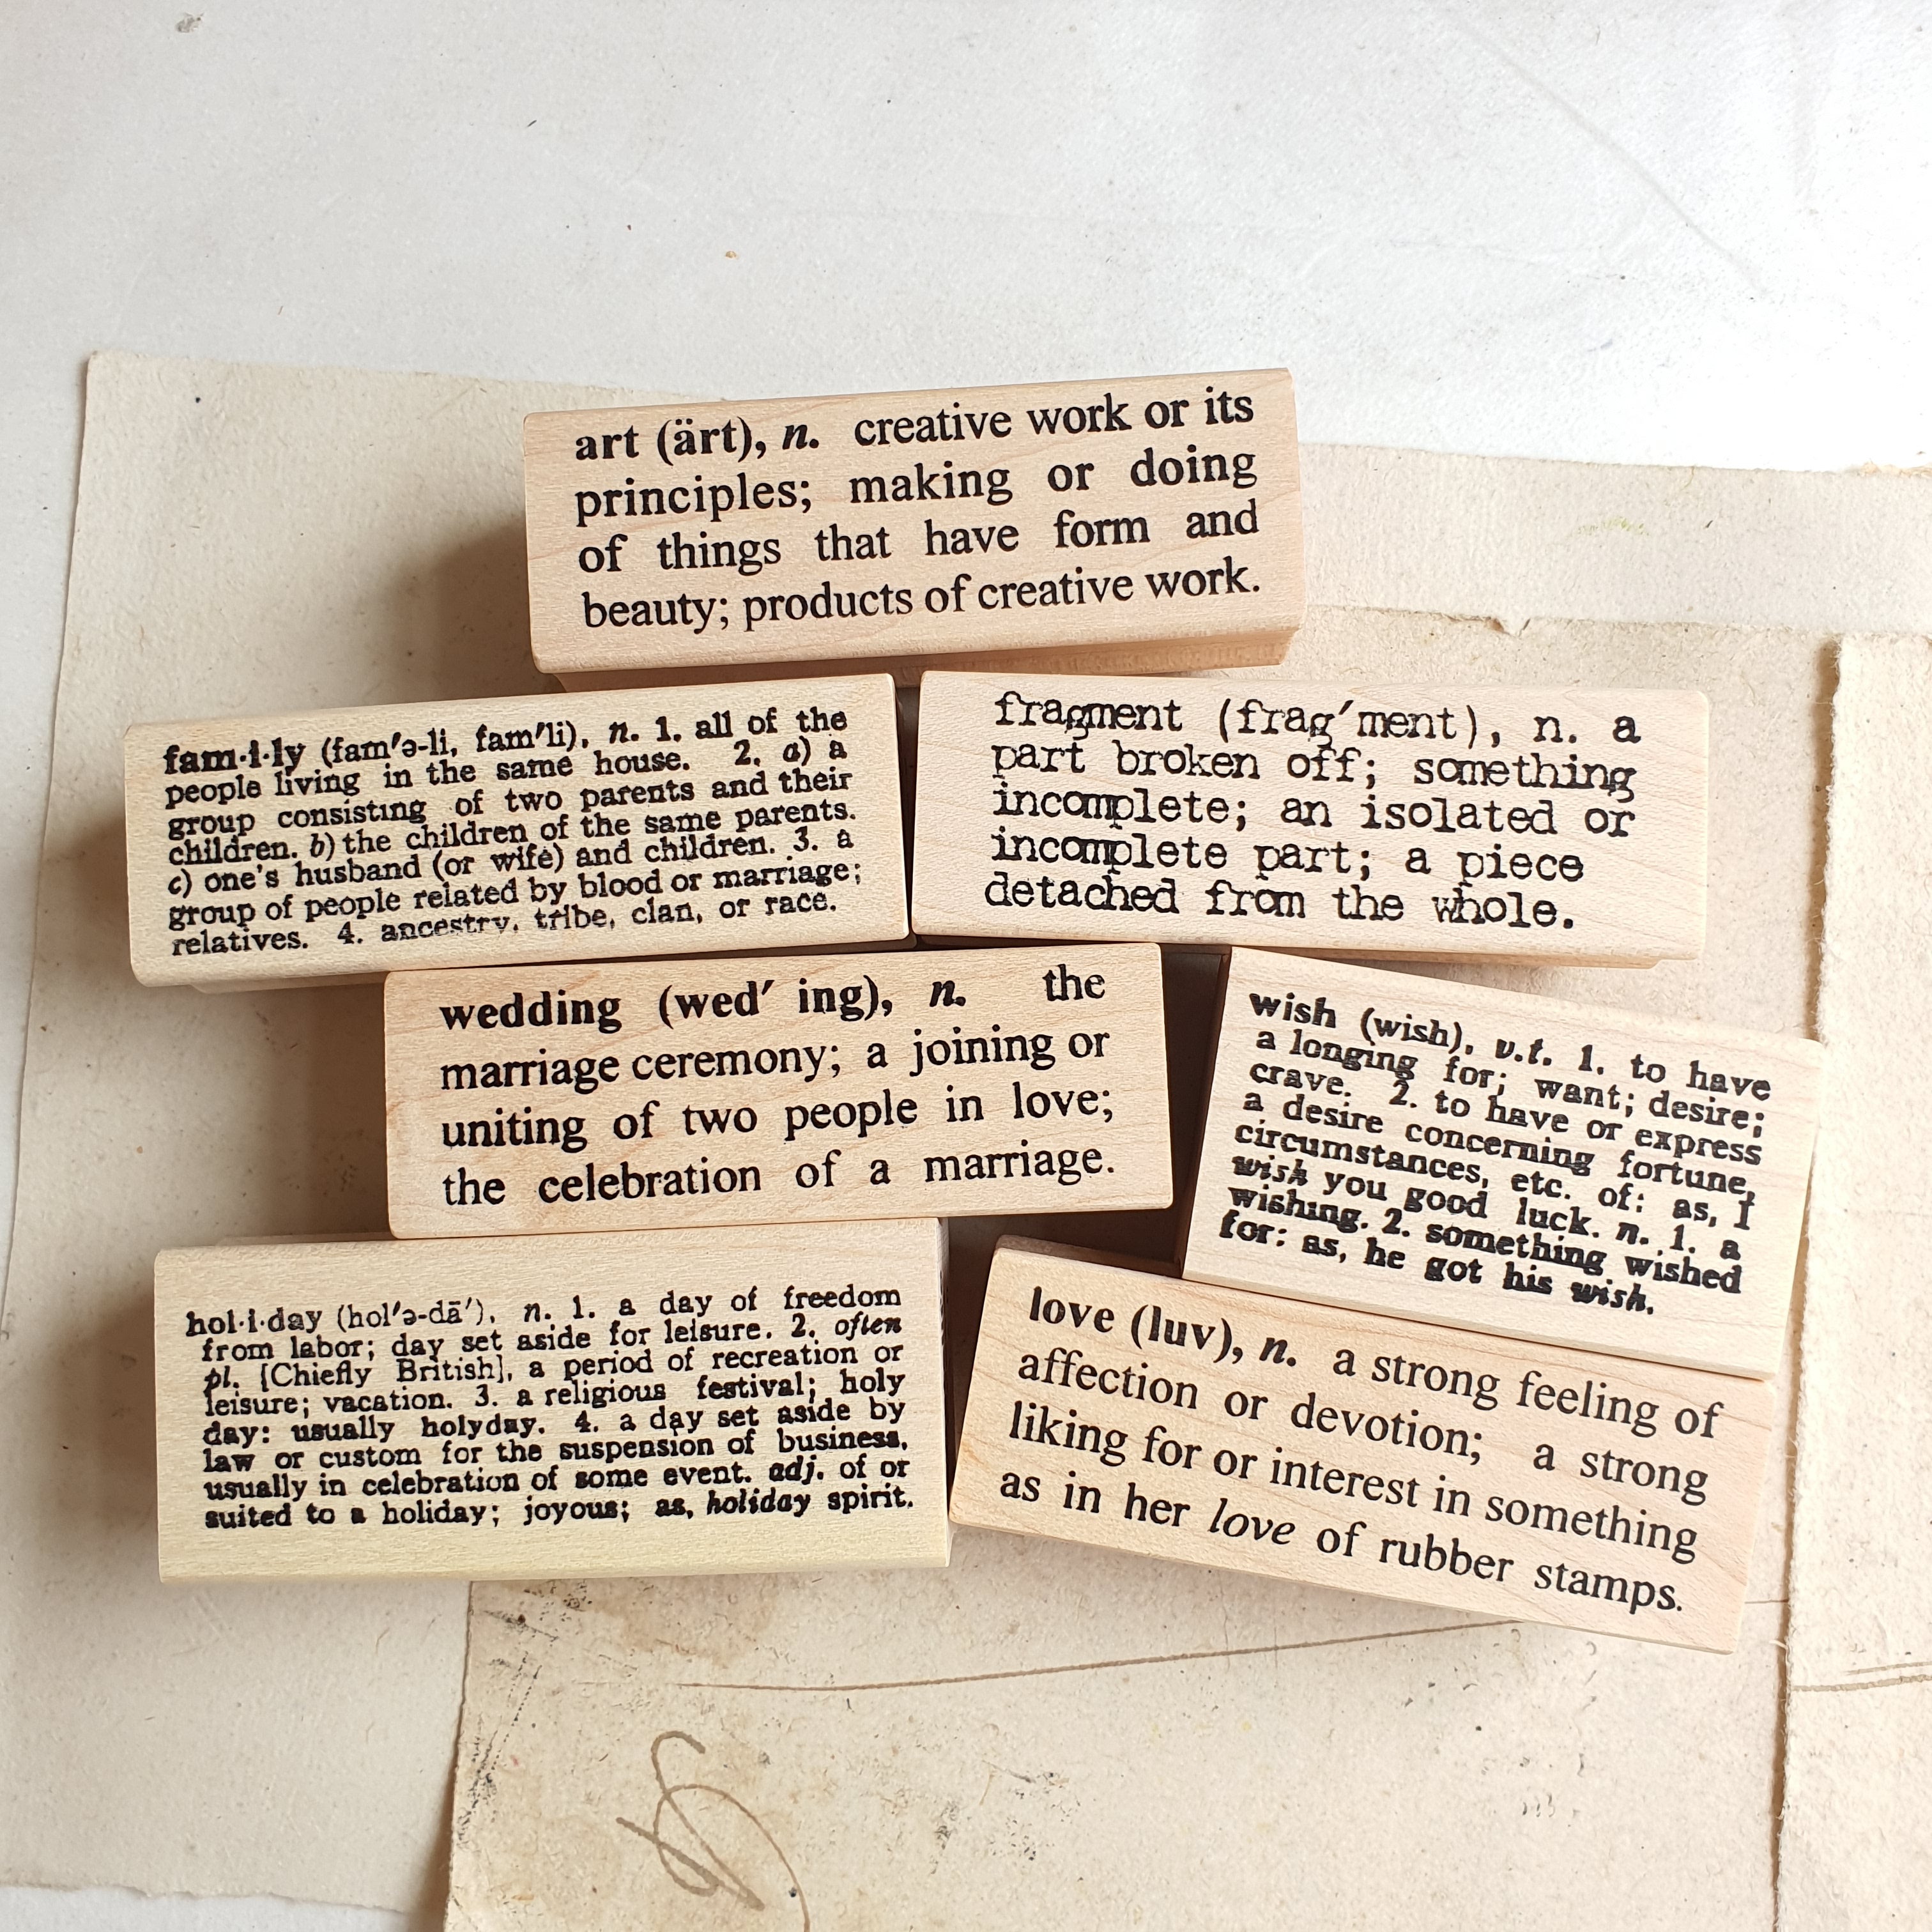 art (ärt), n. creative work or its
principles; making or doing
of things that have form and
beauty; products of creative work.
fam·i·ly (fam′ə-li, fam′li), n. 1. all of the
people living in the same house. 2. a) a
group consisting of two parents and their
children. b) the children of the same parents.
c) one's husband (or wife) and children. 3. a
group of people related by blood or marriage;
relatives. 4. ancestry, tribe, clan, or race.
fragment (frag′ment), n. a
part broken off; something
incomplete; an isolated or
incomplete part; a piece
detached from the whole.
wedding (wed′ ing), n. the
marriage ceremony; a joining or
uniting of two people in love;
the celebration of a marriage.
wish (wish), v.t. 1. to have
a longing for; want; desire;
crave. 2. to have or express
a desire concerning fortune,
circumstances, etc. of: as, I
wish you good luck. n. 1. a
wishing. 2. something wished
for: as, he got his wish.
hol·i·day (hol′ə-dā′), n. 1. a day of freedom
from labor; day set aside for leisure. 2. often
pl. [Chiefly British], a period of recreation or
leisure; vacation. 3. a religious festival; holy
day: usually holyday. 4. a day set aside by
law or custom for the suspension of business,
usually in celebration of some event. adj. of or
suited to a holiday; joyous; as, holiday spirit.
love (luv), n. a strong feeling of
affection or devotion; a strong
liking for or interest in something
as in her love of rubber stamps.